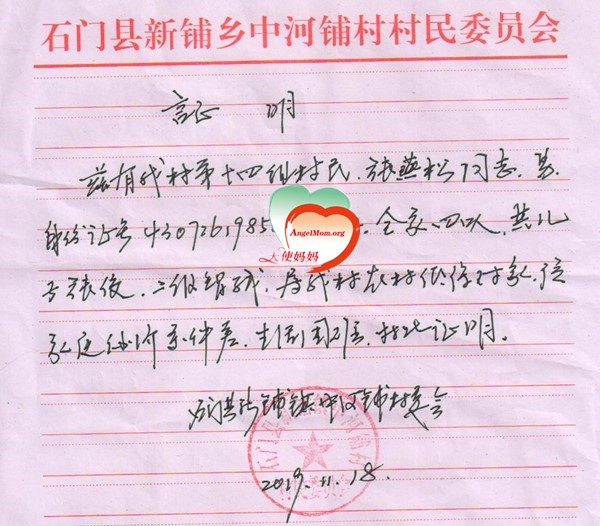 石门县新铺乡中河铺村村民委员会
证 明
兹有我村第十四组村民,张燕松同志,其
身份证号4307261985 全家四人,其儿
AngelMom.org
天使妈妈
子张俊,二级智残,属我村农村低保对象,该
家庭经济条件差,生活困难,特此证明。
石门县新铺镇中河铺村委会
2019.11.18.